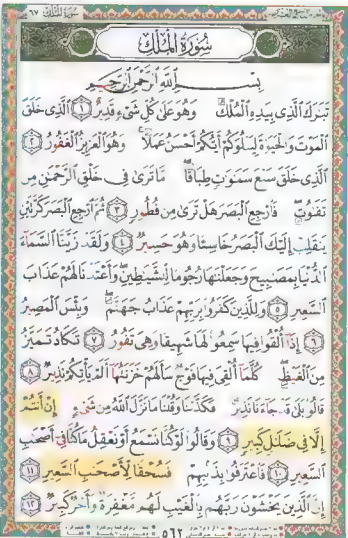 سُورَةُ المُلْكِ ٦٧
سُورَةُ المُلْكِ
بِسْمِ اللَّهِ الرَّحْمَٰنِ الرَّحِيمِ
تَبَٰرَكَ الَّذِي بِيَدِهِ الْمُلْكُ وَهُوَ عَلَىٰ كُلِّ شَيْءٍ قَدِيرٌ ١ الَّذِي خَلَقَ
الْمَوْتَ وَالْحَيَوٰةَ لِيَبْلُوَكُمْ أَيُّكُمْ أَحْسَنُ عَمَلًا وَهُوَ الْعَزِيزُ الْغَفُورُ ٢
الَّذِي خَلَقَ سَبْعَ سَمَٰوَٰتٍ طِبَاقًا مَّا تَرَىٰ فِي خَلْقِ الرَّحْمَٰنِ مِن
تَفَٰوُتٍ فَارْجِعِ الْبَصَرَ هَلْ تَرَىٰ مِن فُطُورٍ ٣ ثُمَّ ارْجِعِ الْبَصَرَ كَرَّتَيْنِ
يَنقَلِبْ إِلَيْكَ الْبَصَرُ خَاسِئًا وَهُوَ حَسِيرٌ ٤ وَلَقَدْ زَيَّنَّا السَّمَآءَ
الدُّنْيَا بِمَصَٰبِيحَ وَجَعَلْنَٰهَا رُجُومًا لِّلشَّيَٰطِينِ وَأَعْتَدْنَا لَهُمْ عَذَابَ
السَّعِيرِ ٥ وَلِلَّذِينَ كَفَرُوا بِرَبِّهِمْ عَذَابُ جَهَنَّمَ وَبِئْسَ الْمَصِيرُ
٦ إِذَآ أُلْقُوا فِيهَا سَمِعُوا لَهَا شَهِيقًا وَهِيَ تَفُورُ ٧ تَكَادُ تَمَيَّزُ
مِنَ الْغَيْظِ كُلَّمَآ أُلْقِيَ فِيهَا فَوْجٌ سَأَلَهُمْ خَزَنَتُهَآ أَلَمْ يَأْتِكُمْ نَذِيرٌ ٨
قَالُوا بَلَىٰ قَدْ جَآءَنَا نَذِيرٌ فَكَذَّبْنَا وَقُلْنَا مَا نَزَّلَ اللَّهُ مِن شَيْءٍ إِنْ أَنتُمْ
إِلَّا فِي ضَلَٰلٍ كَبِيرٍ ٩ وَقَالُوا لَوْ كُنَّا نَسْمَعُ أَوْ نَعْقِلُ مَا كُنَّا فِي أَصْحَٰبِ
السَّعِيرِ ١٠ فَاعْتَرَفُوا بِذَنۢبِهِمْ فَسُحْقًا لِّأَصْحَٰبِ السَّعِيرِ ١١
إِنَّ الَّذِينَ يَخْشَوْنَ رَبَّهُم بِالْغَيْبِ لَهُم مَّغْفِرَةٌ وَأَجْرٌ كَبِيرٌ ١٢
٥٦٢